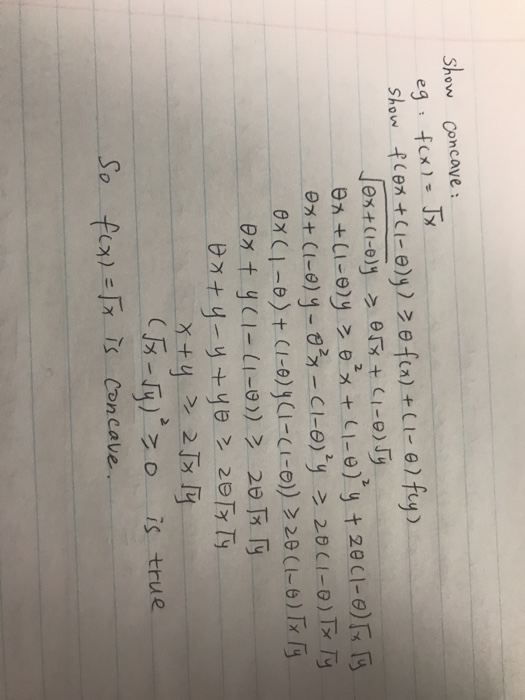 Show concave:
eg: f(x) = √x
show f(θx + (1-θ)y) ≥ θ f(x) + (1-θ) f(y)
√(θx + (1-θ)y) ≥ θ√x + (1-θ)√y
θx + (1-θ)y ≥ θ²x + (1-θ)²y + 2θ(1-θ)√x √y
θx + (1-θ)y - θ²x - (1-θ)²y ≥ 2θ(1-θ)√x √y
θx(1-θ) + (1-θ)y(1-(1-θ)) ≥ 2θ(1-θ)√x √y
θx + y(1-(1-θ)) ≥ 2θ√x √y
θx + y - y + yθ ≥ 2θ√x √y
x + y ≥ 2√x √y
(√x - √y)² ≥ 0 is true
So f(x) = √x is concave.